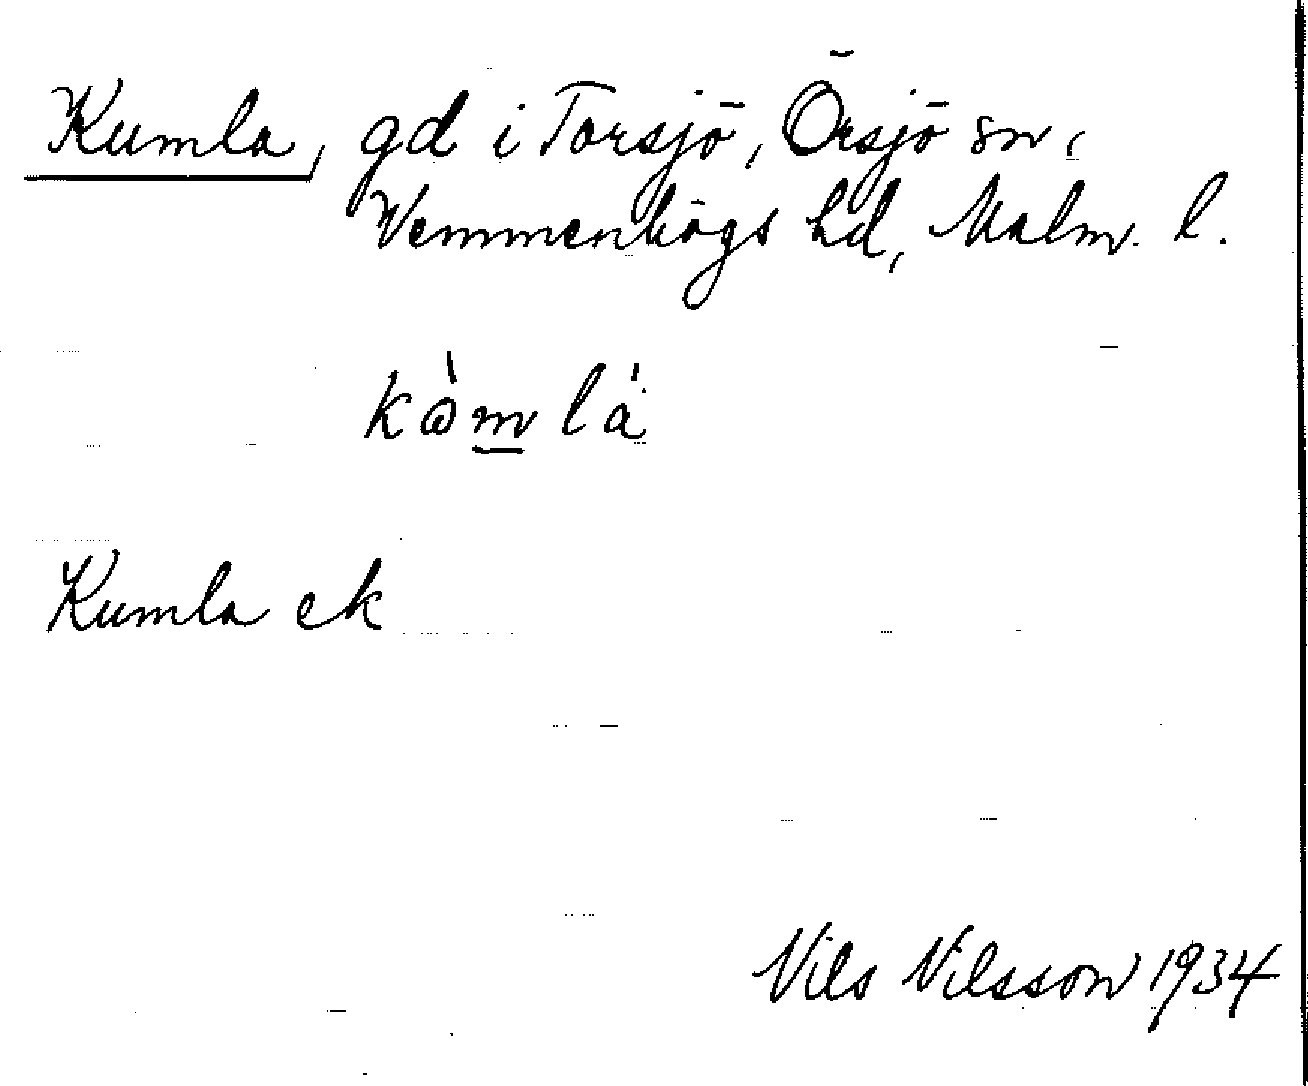 Kumla, gd i Torsjö, Örsjö sn,
Vemmenhögs hd, Malm. l.
kòmlà
Kumla ek
Nils Nilsson 1934